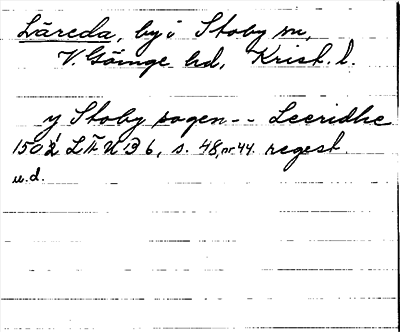 Läreda, by i Stoby sn,
V. Göinge hd, Krist. l.
y Stoby sogen -- Leeridhe
1502 LÄU 136, s. 48, nr 44. regest
u.d.